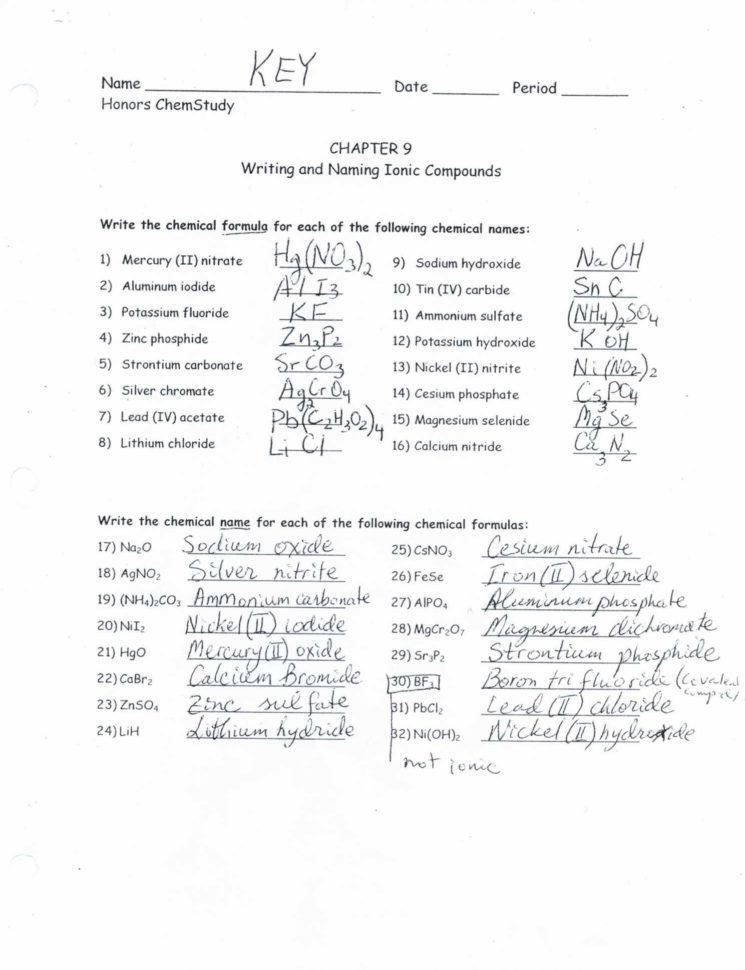 Name KEY Date Period
Honors ChemStudy
CHAPTER 9
Writing and Naming Ionic Compounds
Write the chemical formula for each of the following chemical names:
1) Mercury (II) nitrate Hg(NO3)2
2) Aluminum iodide AlI3
3) Potassium fluoride KF
4) Zinc phosphide Zn3P2
5) Strontium carbonate SrCO3
6) Silver chromate Ag2CrO4
7) Lead (IV) acetate Pb(C2H3O2)4
8) Lithium chloride LiCl
9) Sodium hydroxide NaOH
10) Tin (IV) carbide SnC
11) Ammonium sulfate (NH4)2SO4
12) Potassium hydroxide KOH
13) Nickel (II) nitrite Ni(NO2)2
14) Cesium phosphate Cs3PO4
15) Magnesium selenide MgSe
16) Calcium nitride Ca3N2
Write the chemical name for each of the following chemical formulas:
17) Na2O Sodium oxide
18) AgNO2 Silver nitrite
19) (NH4)2CO3 Ammonium carbonate
20) NiI2 Nickel (II) iodide
21) HgO Mercury (II) oxide
22) CaBr2 Calcium Bromide
23) ZnSO4 Zinc sulfate
24) LiH Lithium hydride
25) CsNO3 Cesium nitrate
26) FeSe Iron (II) selenide
27) AlPO4 Aluminum phosphate
28) MgCr2O7 Magnesium dichromate
29) Sr3P2 Strontium phosphide
30) BF3 Boron tri fluoride
31) PbCl2 Lead (II) chloride
32) Ni(OH)2 Nickel (II) hydroxide
not ionic